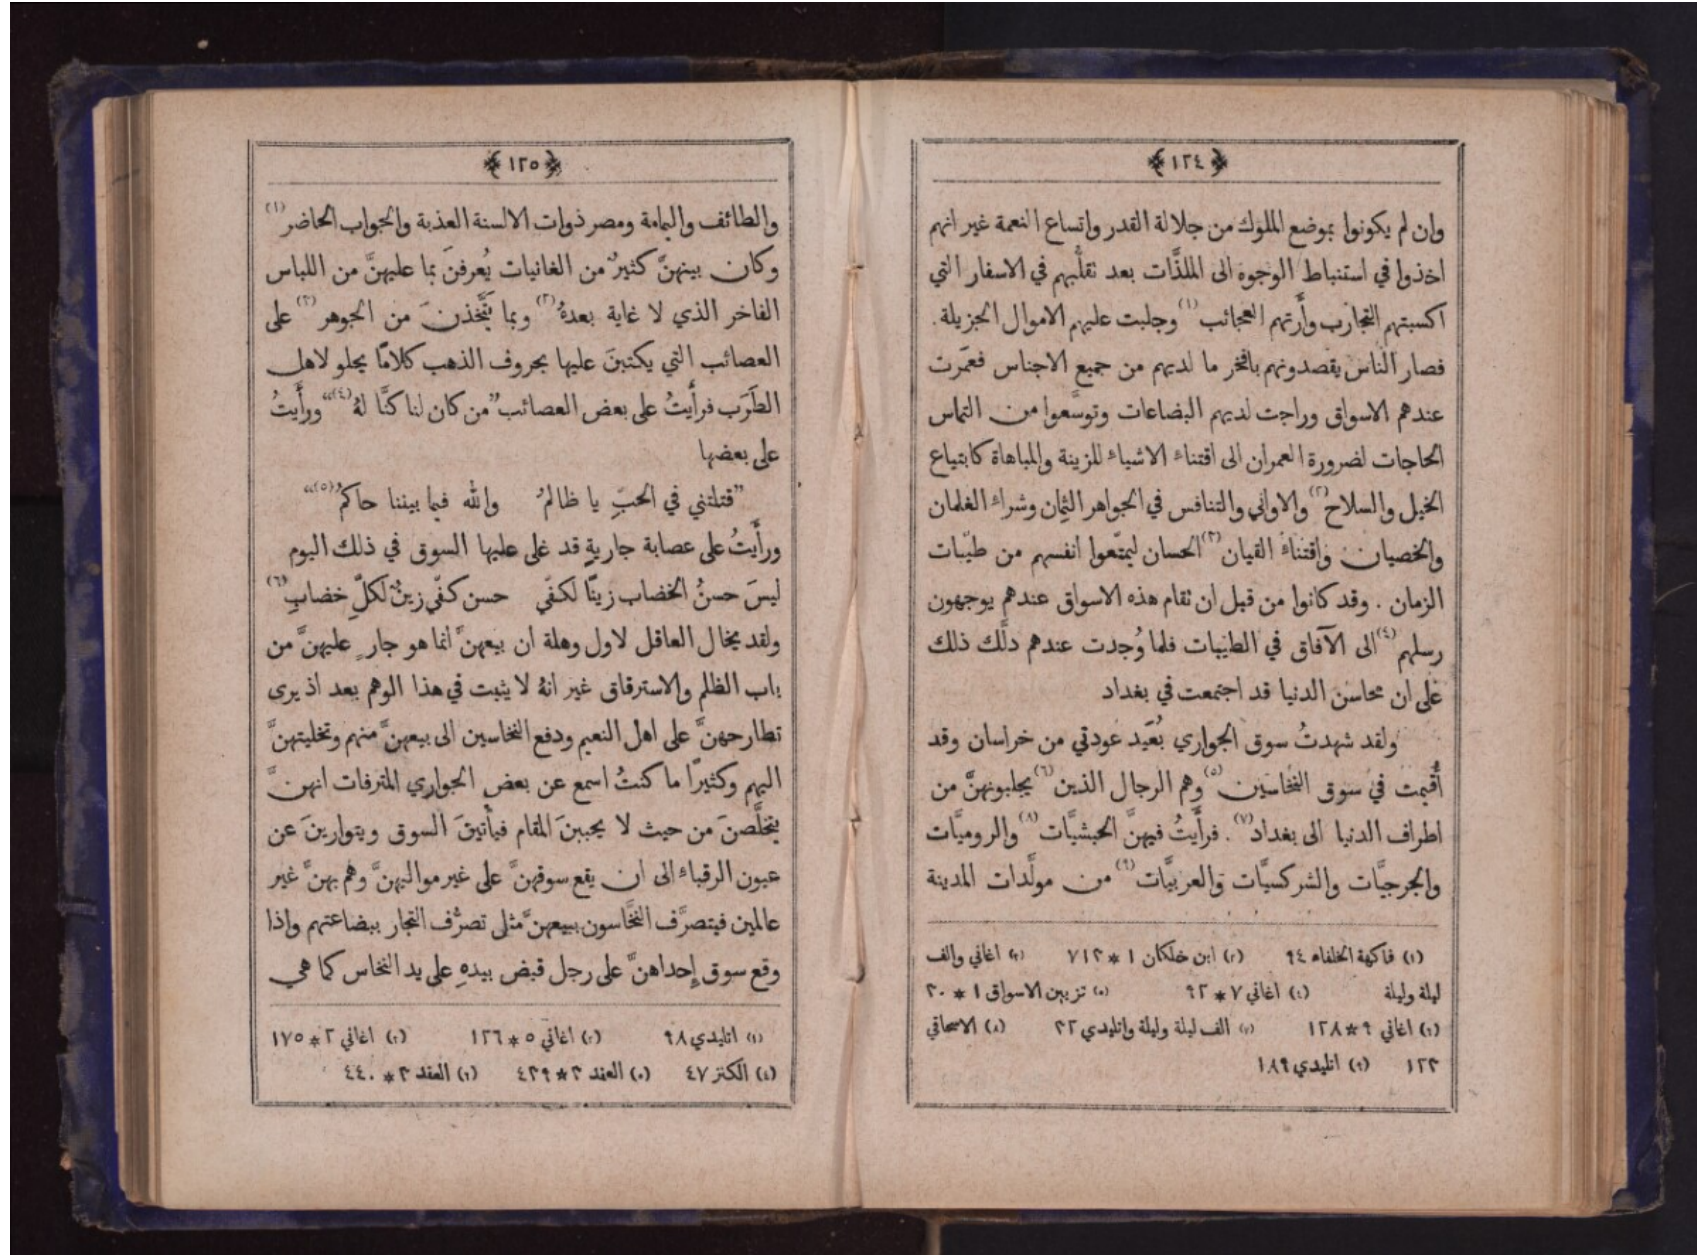 ﴿١٢٤﴾
وان لم يكونوا بموضع الملوك من جلالة القدر واتساع النعمة غير انهم
اخذوا في استنباط الوجوه الى الملذَّات بعد تقلُّبهم في الاسفار التي
اكسبتهم التجارب وأَرتهم العجائب(١) وجلبت عليهم الاموال الجزيلة.
فصار الناس يقصدونهم بافخر ما لديهم من جميع الاجناس فعمَرت
عندهم الاسواق وراجت لديهم البضاعات وتوسَّعوا من التماس
الحاجات لضرورة العمران الى اقتناء الاشياء للزينة والمباهاة كابتياع
الخيل والسلاح(٢) والاواني والتنافس في الجواهر الثِمان وشراء الغلمان
والخصيان واقتناء القيان(٣) الحسان ليمتّعوا انفسهم من طيّبات
الزمان . وقد كانوا من قبل ان تقام هذه الاسواق عندهم يوجهون
رسلهم(٤) الى الآفاق في الطيّبات فلما وُجدت عندهم دلَّك ذلك
على ان محاسن الدنيا قد اجتمعت في بغداد
ولقد شهدتُ سوق الجواري بُعَيد عودتي من خراسان وقد
أُقيمت في سوق النخّاسين(٥) وهم الرجال الذين(٦) يجلبونهنَّ من
اطراف الدنيا الى بغداد(٧) . فرأَيتُ فيهنَّ الحبشيَّات(٨) والروميَّات
والجرجيَّات والشركسيَّات والعربيَّات(٩) من مولَّدات المدينة
(١) فاكهة الخلفاء ٩٤ (٢) ابن خلكان ١ * ٧١٣ (٣) اغاني والف
ليلة وليلة (٤) اغاني ٧ * ٩٣ (٥) تزيين الاسواق ١ * ٣٠
(٦) اغاني ٩ * ١٢٨ (٧) الف ليلة وليلة واتليدي ٣٢ (٨) الاسحاقي
١٢٣ (٩) اتليدي ١٨٩
﴿١٢٥﴾
والطائف واليمامة ومصر ذوات الالسنة العذبة والجواب الحاضر(١)
وكان بينهنَّ كثيرٌ من الغانيات يُعرفنَ بما عليهنَّ من اللباس
الفاخر الذي لا غاية بعدهُ(٢) وبما يتَّخذنَ من الجوهر(٣) على
العصائب التي يكتبنَ عليها بحروف الذهب كلامًا يحلو لاهل
الطَرَب فرأَيتُ على بعض العصائب ”من كان لنا كنَّا لهُ(٤)“ ورأَيتُ
على بعضها
”قتلتني في الحبِّ يا ظالمُ والله فيما بيننا حاكمُ(٥)“
ورأَيتُ على عصابة جاريةٍ قد غلى عليها السوق في ذلك اليوم
ليسَ حسنُ الخضاب زينًا لكفّي حسن كفّي زينٌ لكلِّ خضابِ(٦)
ولقد يخال العاقل لاول وهلة ان بيعهنَّ انما هو جارٍ عليهنَّ من
باب الظلم والاسترقاق غير انهُ لا يثبت في هذا الوهم بعد اذ يرى
تطارحهنَّ على اهل النعيم ودفع النخاسين الى بيعهنَّ منهم وتخليتهنَّ
اليهم وكثيرًا ما كنتُ اسمع عن بعض الجواري المترفات انهنَّ
يتخلَّصنَ من حيث لا يحببنَ المقام فيأتينَ السوق ويتوارينَ عن
عيون الرقباء الى ان يقع سوقهنَّ على غير مواليهنَّ وهم بهنَّ غير
عالمين فيتصرَّف النخَّاسون ببيعهنَّ مثلى تصرُّف التجار ببضاعتهم واذا
وقع سوق إِحداهنَّ على رجل قبض بيدهِ على يد النخاس كما هي
(١) اتليدي ٩٨ (٢) اغاني ٥ * ١٢٦ (٣) اغاني ٢ * ١٧٥
(٤) الكنز ٤٧ (٥) العقد ٣ * ٤٣٩ (٦) العقد ٣ * ٤٤٠